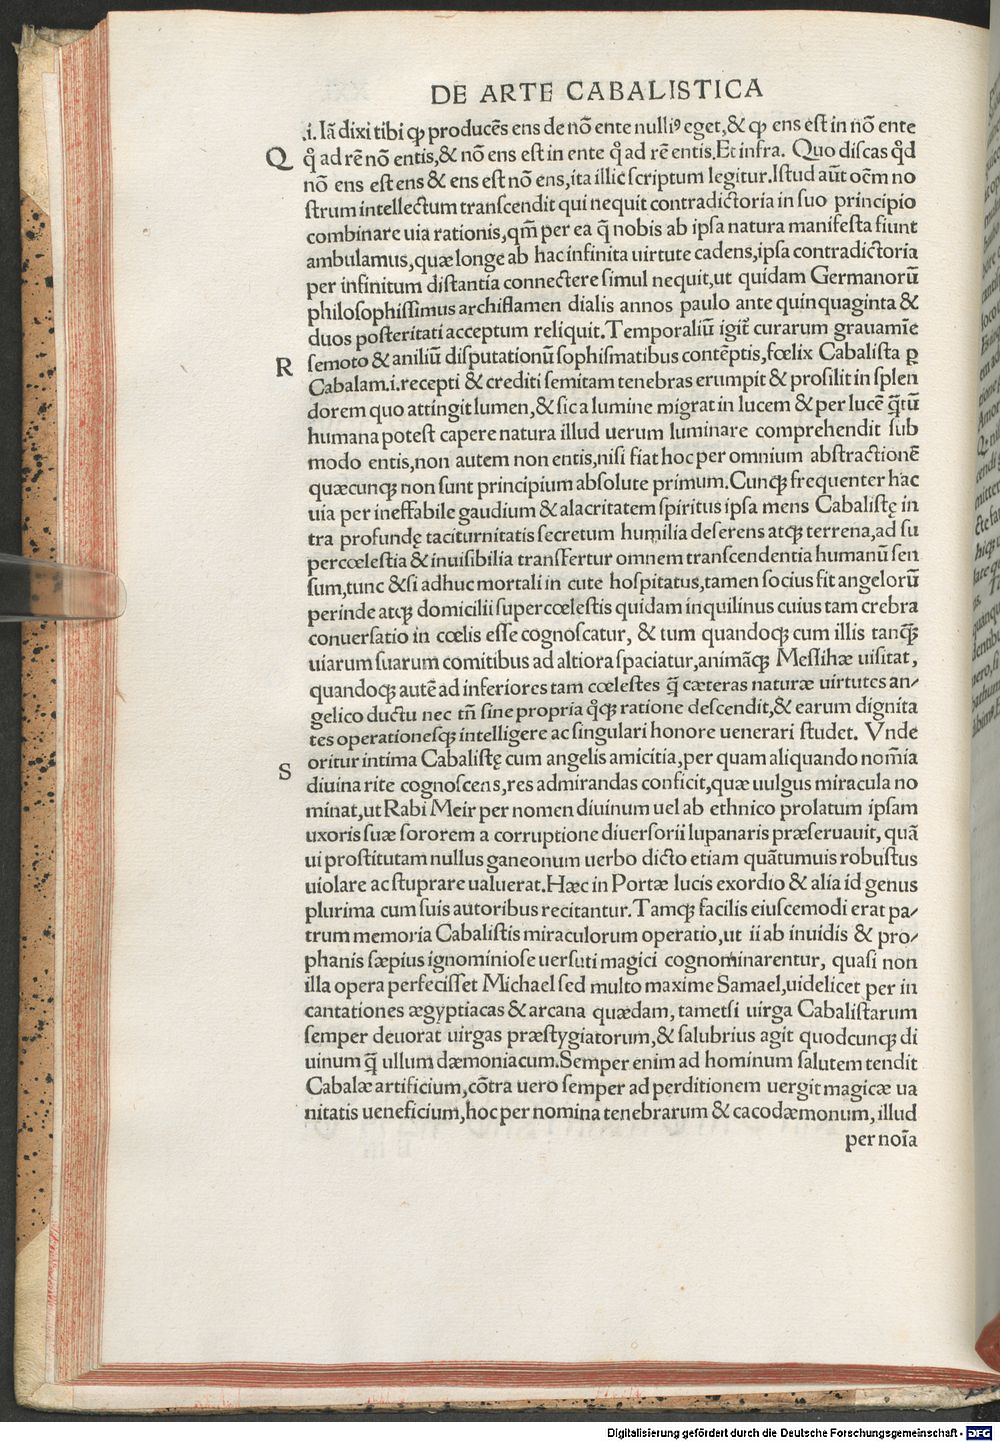 DE ARTE CABALISTICA
.i. Iã dixi tibi ꝙ producẽs ens de nõ ente nulliꝰ eget,& ꝙ ens est in nõ ente
Q
q̊ ad rẽ nõ entis,& nõ ens est in ente q̊ ad rẽ entis.Et infra. Quo discas q̊d
nõ ens est ens & ens est nõ ens,ita illic scriptum legitur.Istud aũt oẽm no
strum intellectum transcendit qui nequit contradictoria in suo principio
combinare uia rationis,qm̃ per ea q̃ nobis ab ipsa natura manifesta fiunt
ambulamus,quæ longe ab hac infinita uirtute cadens,ipsa contradictoria
per infinitum distantia connectere simul nequit,ut quidam Germanorũ
philosophissimus archiflamen dialis annos paulo ante quinquaginta &
duos posteritati acceptum reliquit.Temporaliũ igit̃ curarum grauamĩe
R
semoto & aniliũ disputationũ sophismatibus contẽptis,fœlix Cabalista ꝑ
Cabalam.i.recepti & crediti semitam tenebras erumpit & prosilit in splen
dorem quo attingit lumen,& sic a lumine migrat in lucem & per lucẽ q̃tũ
humana potest capere natura illud uerum luminare comprehendit sub
modo entis,non autem non entis,nisi fiat hoc per omnium abstractionẽ
quæcunqꝫ non sunt principium absolute primum.Cunqꝫ frequenter hac
uia per ineffabile gaudium & alacritatem spiritus ipsa mens Cabalistę in
tra profundę taciturnitatis secretum humilia deserens atqꝫ terrena,ad su
percœlestia & inuisibilia transfertur omnem transcendentia humanũ sen
sum,tunc & si adhuc mortali in cute hospitatus,tamen socius fit angelorũ
perinde atqꝫ domicilii supercœlestis quidam inquilinus cuius tam crebra
conuersatio in cœlis esse cognoscatur, & tum quandoqꝫ cum illis tanq̃ꝫ
uiarum suarum comitibus ad altiora spaciatur,animãqꝫ Messihæ uisitat,
quandoqꝫ autẽ ad inferiores tam cœlestes q̃ cæteras naturæ uirtutes an⸗
gelico ductu nec tñ sine propria q̊qꝫ ratione descendit,& earum dignita
tes operationesqꝫ intelligere ac singulari honore uenerari studet. Vnde
S
oritur intima Cabalistę cum angelis amicitia,per quam aliquando nom̃ia
diuina rite cognoscens,res admirandas conficit,quæ uulgus miracula no
minat,ut Rabi Meir per nomen diuinum uel ab ethnico prolatum ipsam
uxoris suæ sororem a corruptione diuersorii lupanaris præseruauit, quã
ui prostitutam nullus ganeonum uerbo dicto etiam quãtumuis robustus
uiolare ac stuprare ualuerat.Hæc in Portæ lucis exordio & alia id genus
plurima cum suis autoribus recitantur.Tamqꝫ facilis eiuscemodi erat pa⸗
trum memoria Cabalistis miraculorum operatio,ut ii ab inuidis & pro⸗
phanis sæpius ignominiose uersuti magici cognominarentur, quasi non
illa opera perfecisset Michael sed multo maxime Samael,uidelicet per in
cantationes ægyptiacas & arcana quædam, tametsi uirga Cabalistarum
semper deuorat uirgas præstygiatorum,& salubrius agit quodcunqꝫ di
uinum q̃ ullum dæmoniacum.Semper enim ad hominum salutem tendit
Cabalæ artificium,cõtra uero semper ad perditionem uergit magicæ ua
nitatis ueneficium,hoc per nomina tenebrarum & cacodæmonum,illud
per noĩa
Digitalisierung gefördert durch die Deutsche Forschungsgemeinschaft - DFG